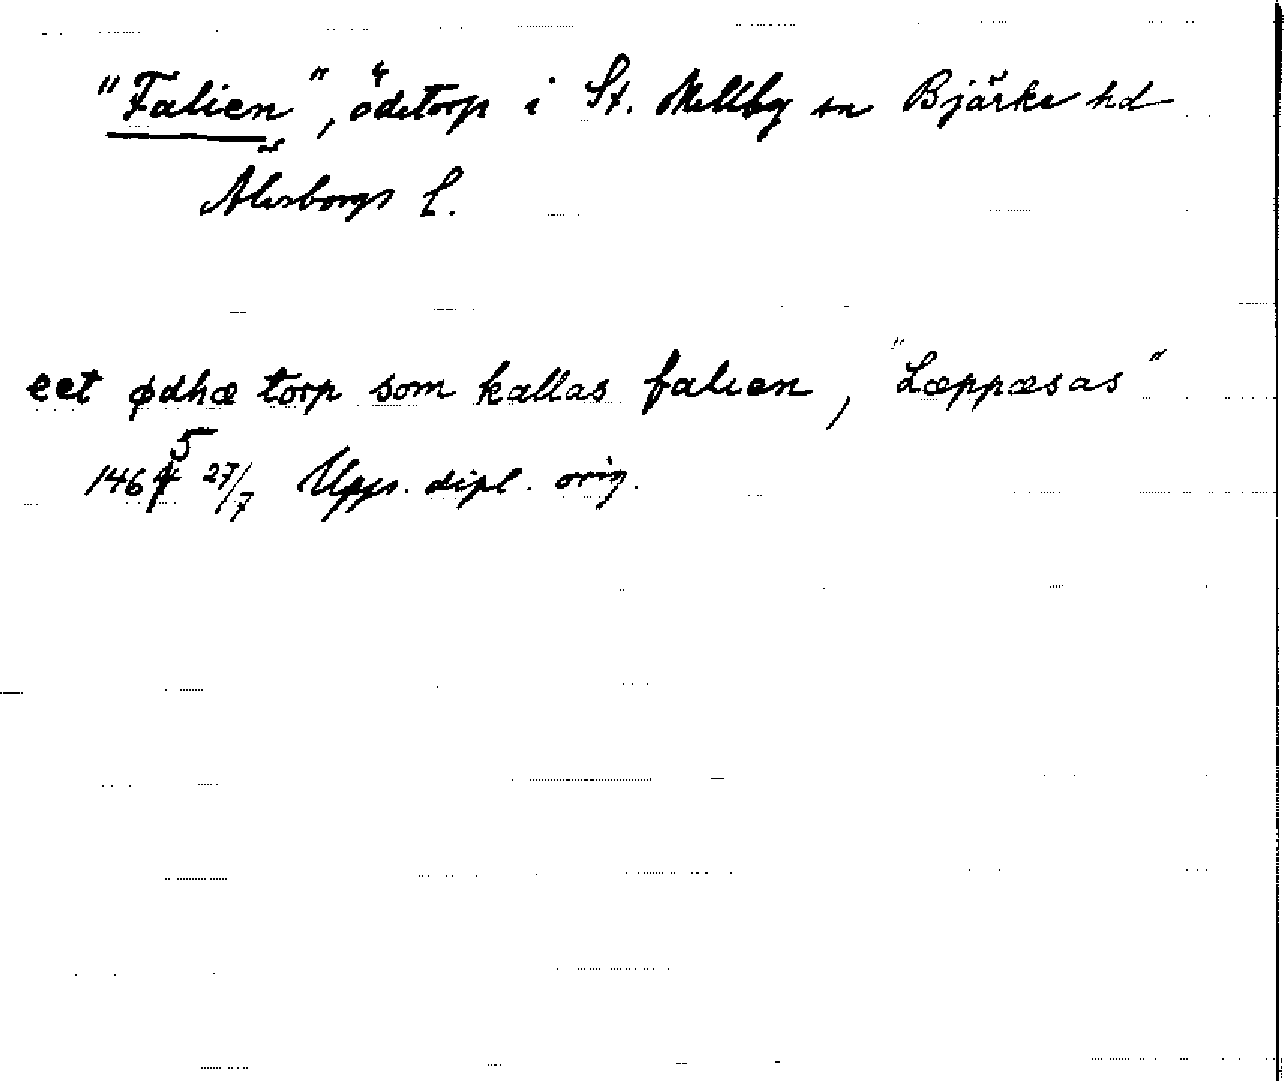 "Falien", ödetorp i St. Mellby sn Bjärke hd
Älvsborgs l.
eet ødhæ torp som kallas falien, "Læppæsas"
1465 27/7 Upps. dipl. orig.